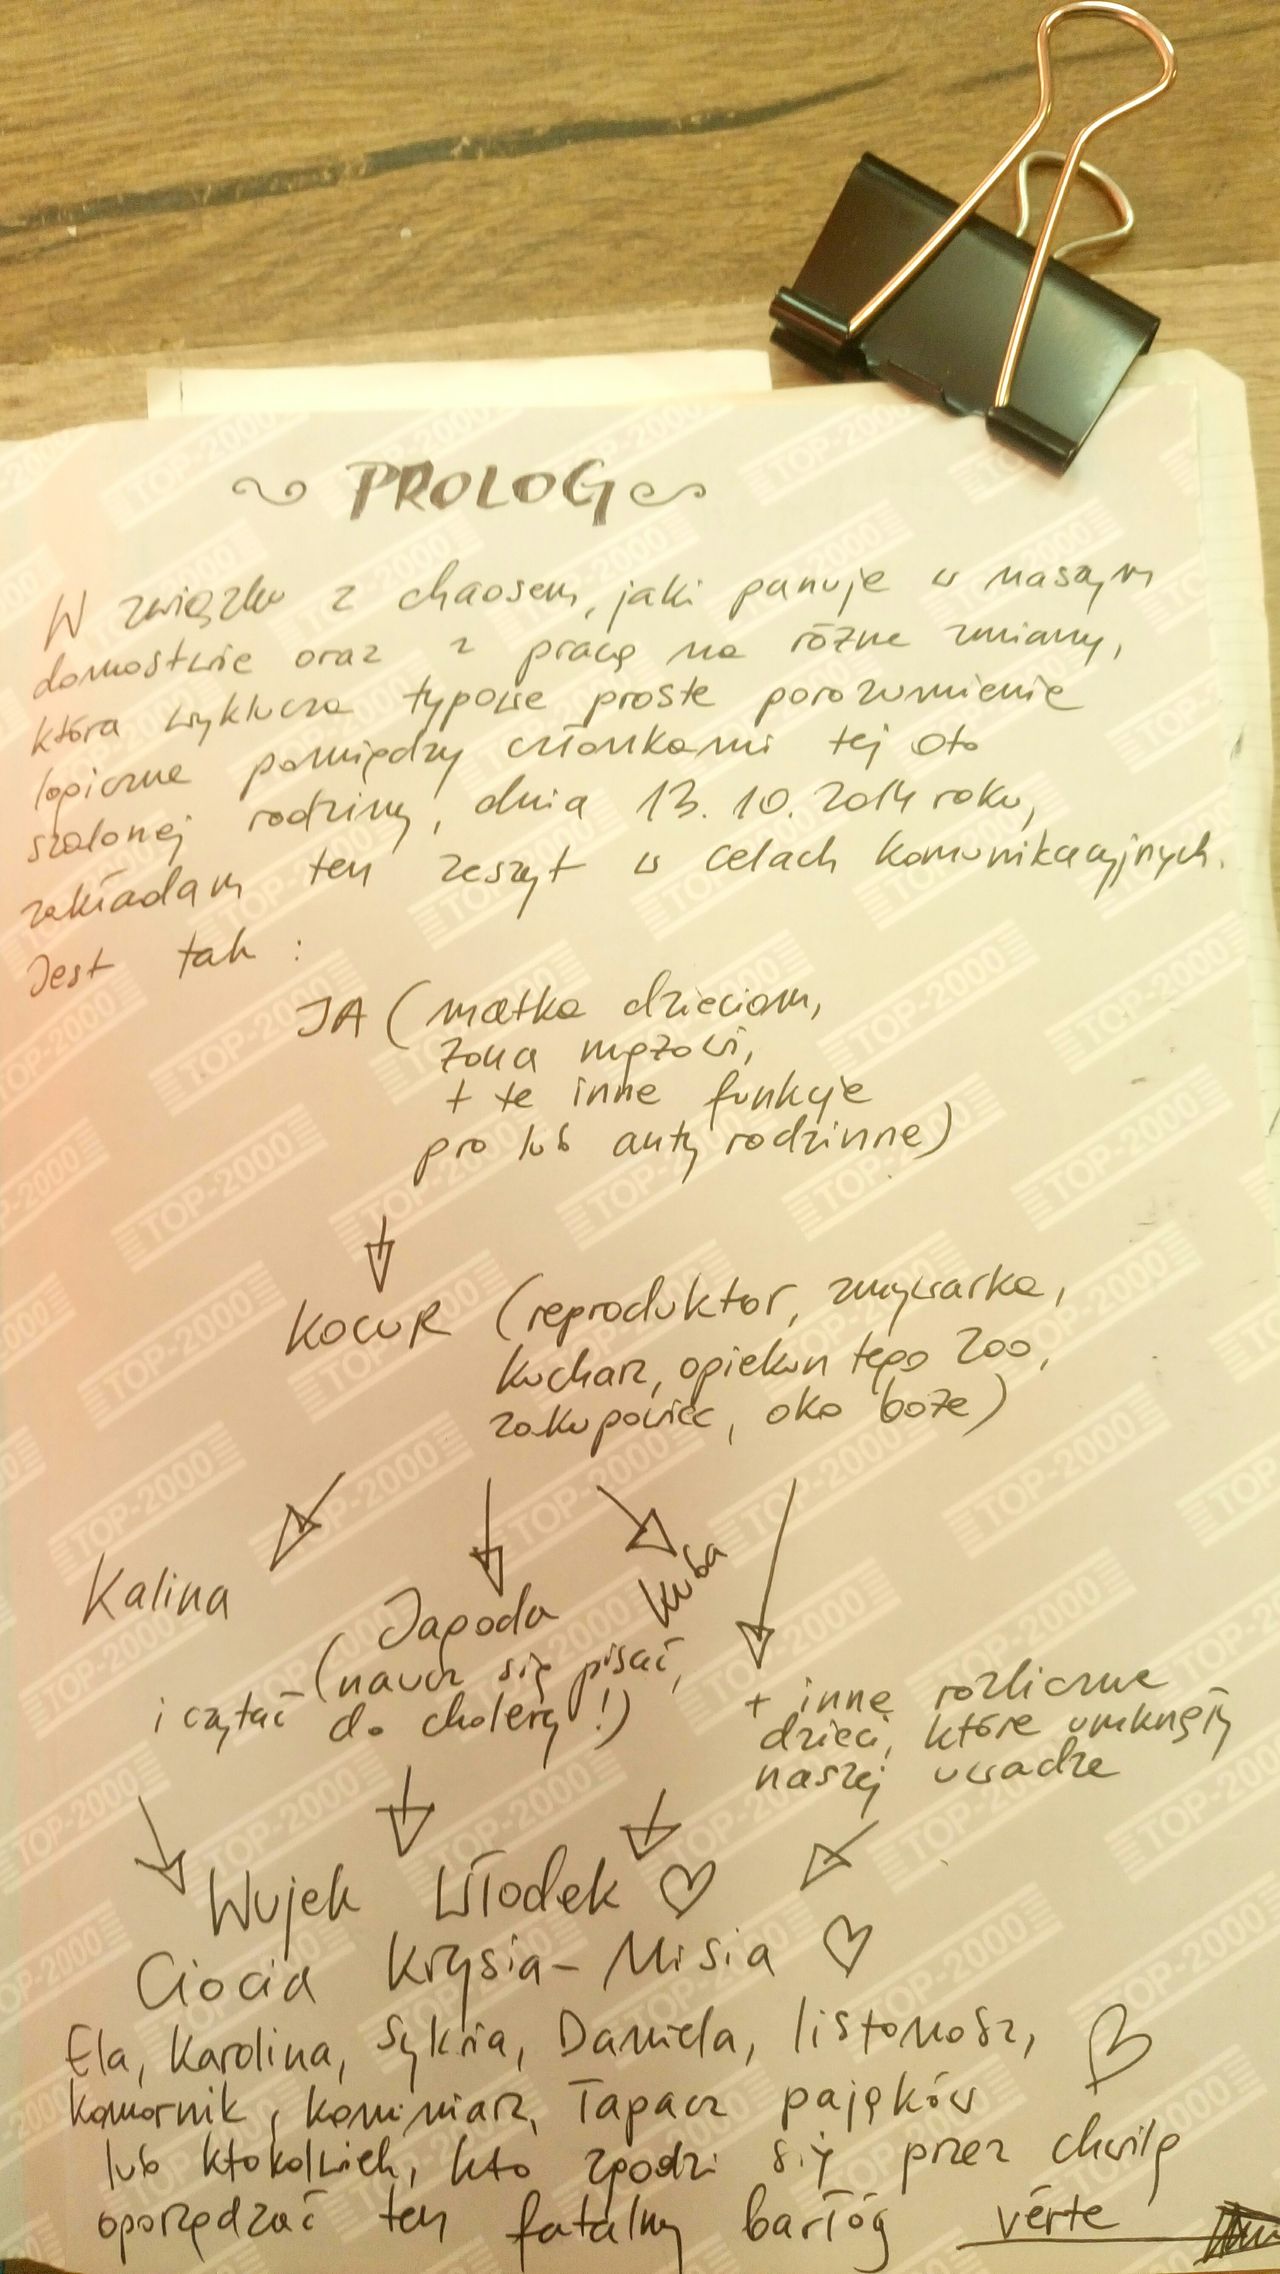 PROLOG
W związku z chaosem, jaki panuje w naszym
domostwie oraz z pracą na różne zmiany,
która wyklucza typowe proste porozumienie
logiczne pomiędzy członkami tej oto
szalonej rodziny, dnia 13.10.2014 roku,
zakładam ten zeszyt w celach komunikacyjnych.
Jest tak:
JA (matka dzieciom,
żona mężowi,
+ te inne funkcje
pro lub anty rodzinne)
KOCUR (reproduktor, zmywarka,
kucharz, opiekun tego zoo,
zakupowiec, oko boże)
Kalina
Jagoda
Kuba
(naucz się pisać,
i czytać do cholery!)
+ inne rozliczne
dzieci, które umknęły
naszej uwadze
Wujek Włodek ♡
Ciocia Krysia-Misia ♡
Ela, Karolina, Sylwia, Daniela, listonosz, ♡
komornik, kominiarz, łapacz pająków
lub ktokolwiek, kto zgodzi się przez chwilę
oporządzać ten fatalny barłóg verte
TOP-2000